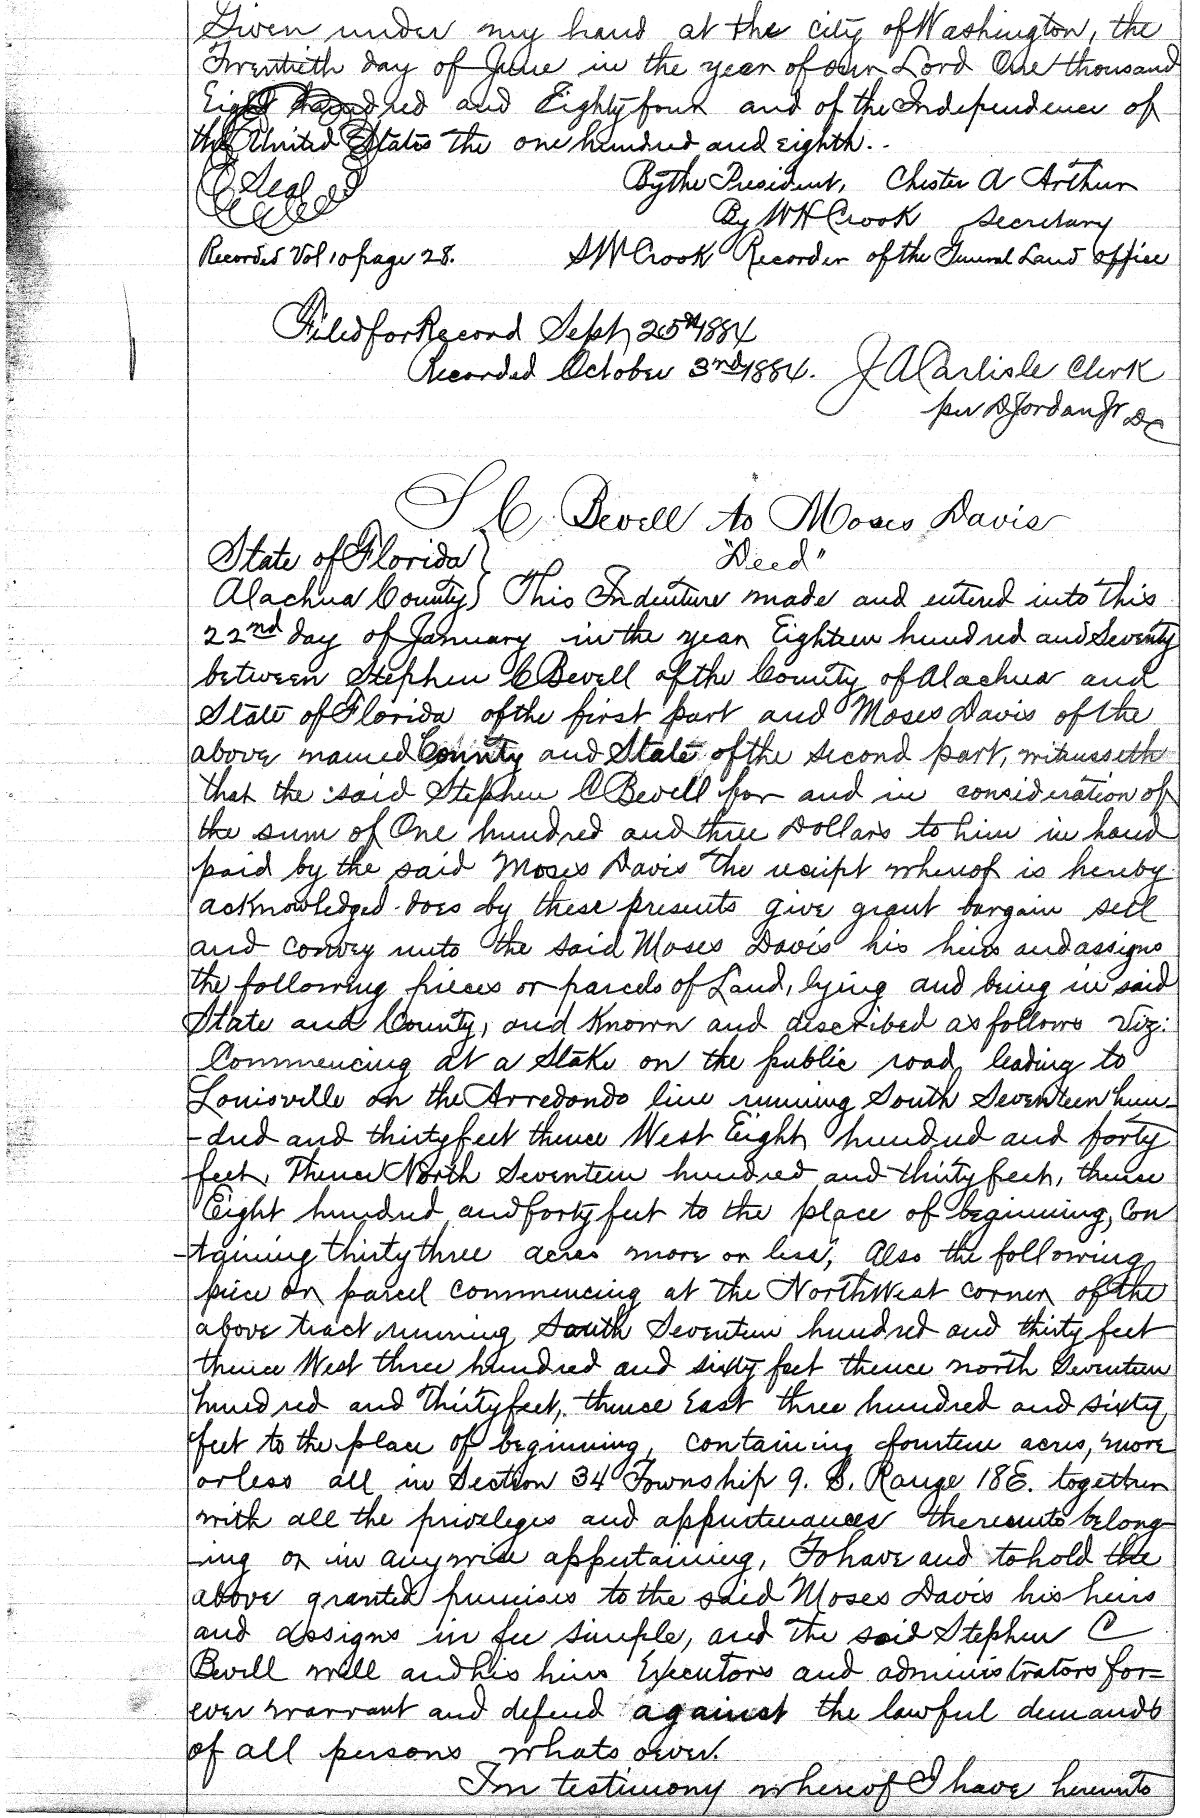 Given under my hand at the city of Washington, the
Twentieth day of June in the year of our Lord One thousand
Eight hundred and Eighty four and of the Independence of
the United States the one hundred and eighth.
By the President, Chester A Arthur
Seal
By W H Crook Secretary
Recorded Vol 10 page 28. S W Crook Recorder of the General Land office
Filed for Record Sept 25th 1884
Recorded October 3rd 1884. J A Carlisle Clerk
per D Jordan Jr DC
S C. Bevell to Moses Davis
State of Florida } "Deed"
Alachua County } This Indenture made and entered into this
22nd day of January in the year Eighteen hundred and Seventy
between Stephen C Bevell of the County of Alachua and
State of Florida of the first part and Moses Davis of the
above named County and State of the second part, witnesseth
that the said Stephen C Bevell for and in consideration of
the sum of One hundred and three Dollars to him in hand
paid by the said Moses Davis the receipt whereof is hereby
acknowledged does by these presents give grant bargain sell
and convey unto the said Moses Davis his heirs and assigns
the following pieces or parcels of Land, lying and being in said
State and County, and Known and described as follows Viz:
Commencing at a Stake on the public road leading to
Louisville on the Arredondo line running South Seventeen hun-
-dred and thirty feet thence West Eight hundred and forty
feet, Thence North Seventeen hundred and thirty feet, thence
Eight hundred and forty feet to the place of beginning, Con
-taining thirty three acres more or less, Also the following
piece or parcel commencing at the North West corner of the
above tract running South Seventeen hundred and thirty feet
thence West three hundred and sixty feet thence north Seventeen
hundred and Thirty feet, thence East three hundred and sixty
feet to the place of beginning, containing fourteen acres, more
or less all in Section 34 Township 9. S. Range 18 E. together
with all the privileges and appurtenances thereunto belong
-ing or in anywise appertaining, To have and to hold the
above granted premises to the said Moses Davis his heirs
and assigns in fee simple, and the said Stephen C
Bevill will and his heirs Executors and administrators for=
ever warrant and defend against the lawful demands
of all persons whatsoever.
In testimony whereof I have hereunto